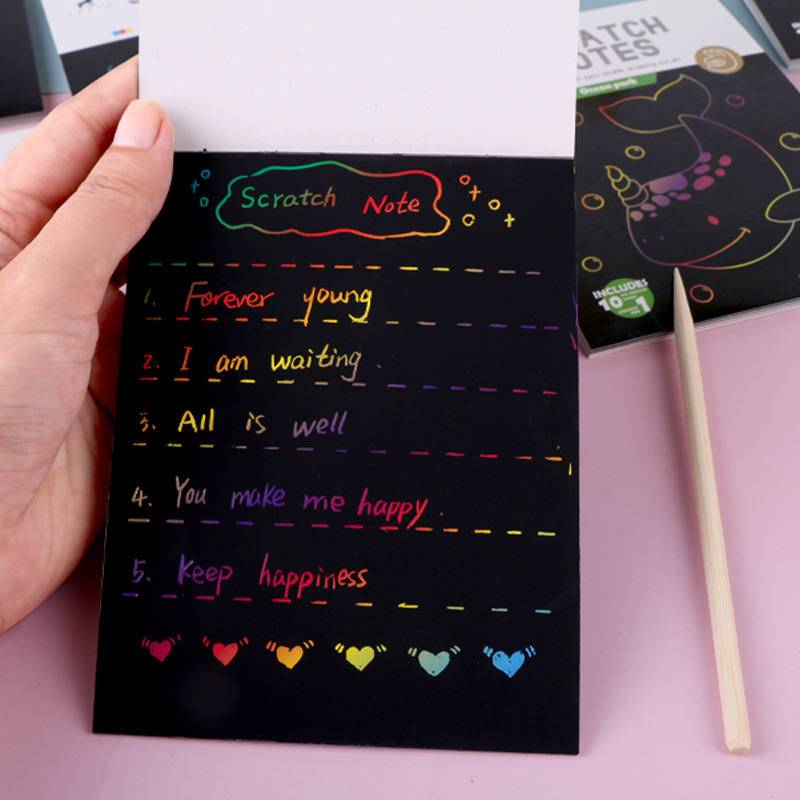 Scratch Note
1. Forever young
2. I am waiting.
3. All is well
4. You make me happy.
5. Keep happiness
ATCH
OTES
Ocean park
INCLUDES
10 1